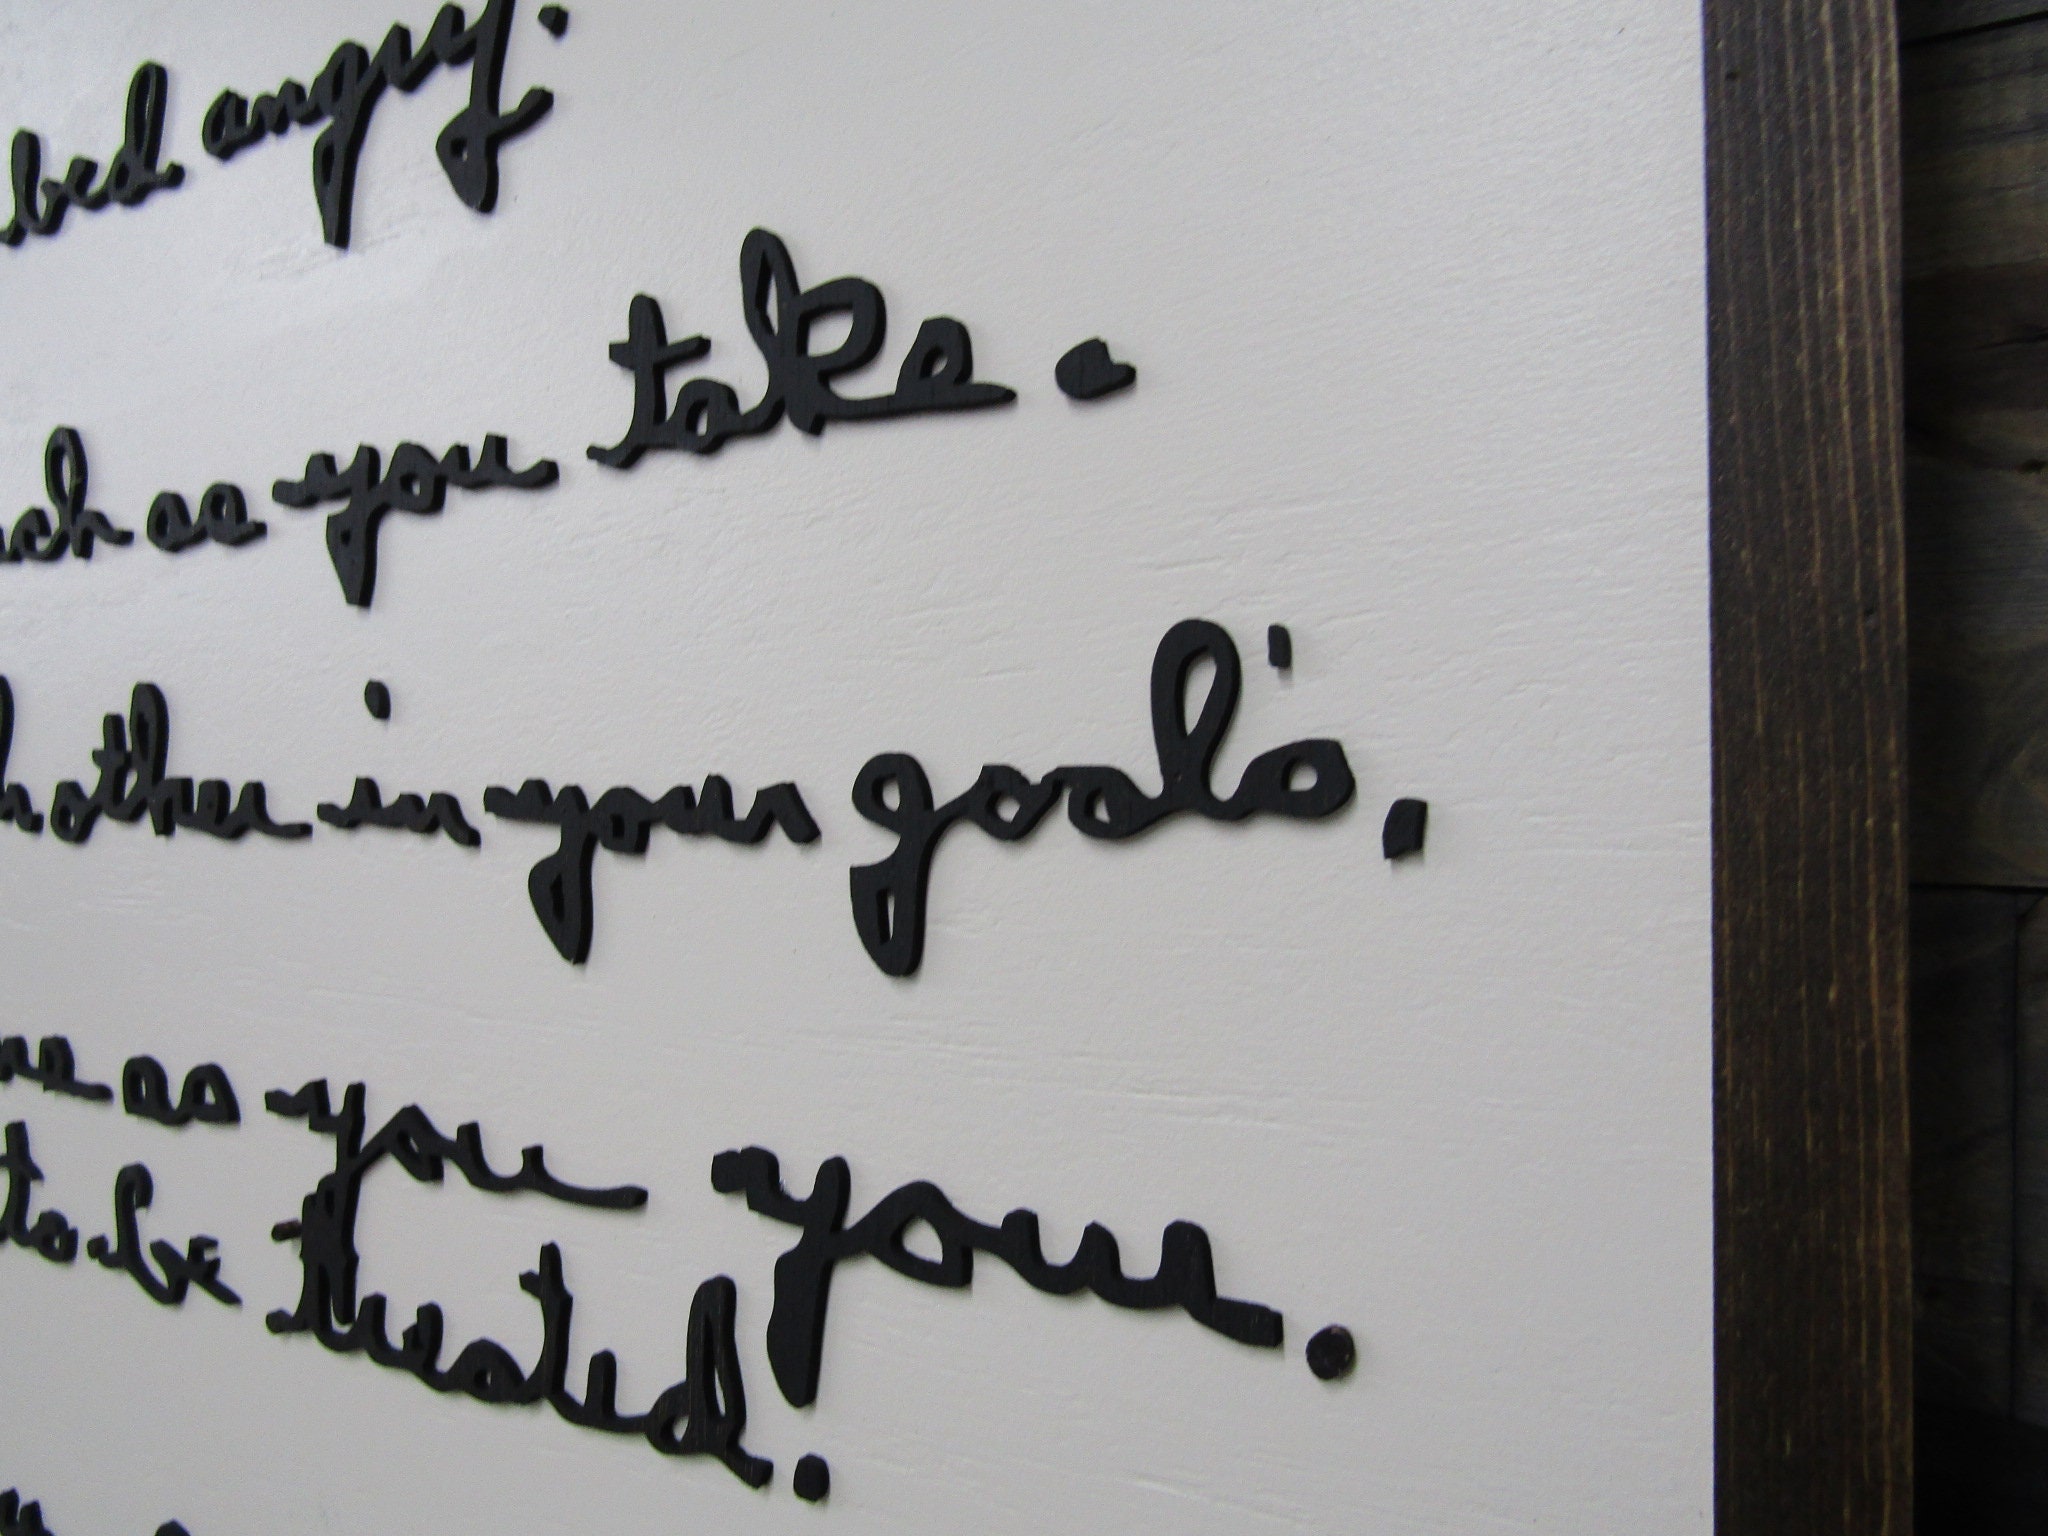 bed angry.
ch as you take.
nother in your goal's.
me as you your.
to be treated.